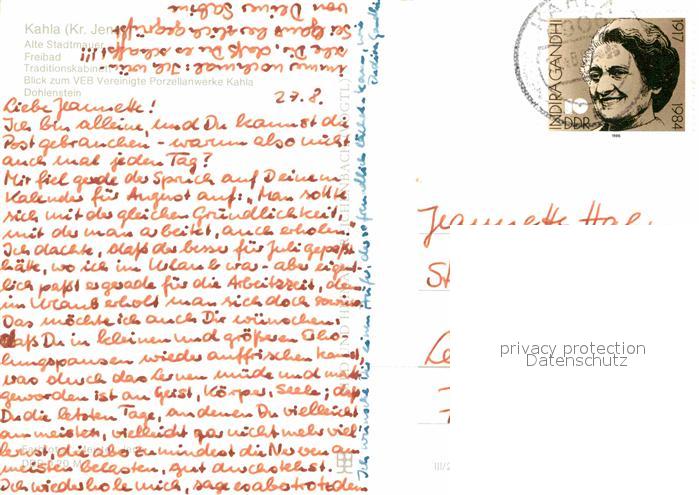 Kahla (Kr. Jena)
Alte Stadtmauer
Freibad
Traditionskabinett
Blick zum VEB Vereinigte Porzellanwerke Kahla
Dohlenstein
27.8.
Liebe Jeannette!
Ich bin alleine, und Du kannst die
Post gebrauchen - warum also nicht
auch mal jeden Tag?
Mir fiel gerade der Spruch auf Deinem
Kalender für August auf: „Man sollte
sich mit der gleichen Gründlichkeit,
mit der man arbeitet, auch erholen."
Ich dachte, daß der besser für Juli gepaßt
hätte, wo ich im Urlaub war - aber eigent-
lich paßt er gerade für die Arbeitszeit, denn
im Urlaub erholt man sich doch sowieso.
Das möchte ich auch Dir wünschen:
daß Du in kleinen und größeren Erho-
lungspausen wieder auffrischen kannst,
was durch das Lernen müde und matt
geworden ist an Geist, Körper, Seele; daß
Du die letzten Tage, an denen Du vielleicht
am meisten, vielleicht gar nicht mehr viel
lernst, die aber zumindest die Nerven am
meisten belasten, gut durchstehst.
Ich wiederhole mich, sage es aber trotzdem
immer nochmal: Ich
alle Die, daß Du es schaffst!!!
Sei ganz herzlich gegrüßt
von Deiner Sabine
Indira Gandhi
KAHLA
INDIRA GANDHI
1917
1984
10
DDR
1986
Jeannette
St
Le
privacy protection
Datenschutz
III/2